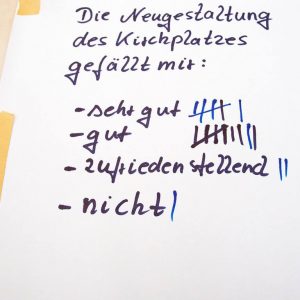 Die Neugestaltung
des Kirchplatzes
gefällt mir:
- sehr gut
- gut
- zufriedenstellend
- nicht